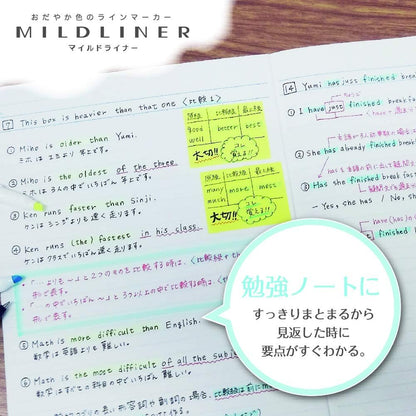 おだやか色のラインマーカー
MILDLINER
マイルドライナー
7 This box is heavier than that one 〈比較1〉
① Miho is older than Yumi.
ミホはユミより年上です。
② Miho is the oldest of the three.
ミホは3人の中でいちばん年上です。
③ Ken runs faster than Shinji.
ケンはシンジよりも速く走ります。
④ Ken runs (the) fastest in his class.
ケンはクラスでいちばん速く走ります。
・「…よりも〜」と2つのものを比較する時は、
形で表す。
・「…の中でいちばん〜」と3つ以上の中で比較する時は
形で表す。
⑤ Math is more difficult than English.
数学は英語よりも難しい。
⑥ Math is the most difficult of all the subje
数学はすべての科目の中でいちばん難しい。
原級 比較級 最上級
good better best
well
大切!! コレ覚える!!
原級 比較級 最上級
many more most
much
大切!! コレ覚える!!
14 Yumi has just finished
① I have just finished breakfa
② She has already finished break
③ Has she finished breakfast
- Yes, she has. / No, she
finished break
勉強ノートに
すっきりまとまるから
見返した時に
要点がすぐわかる。